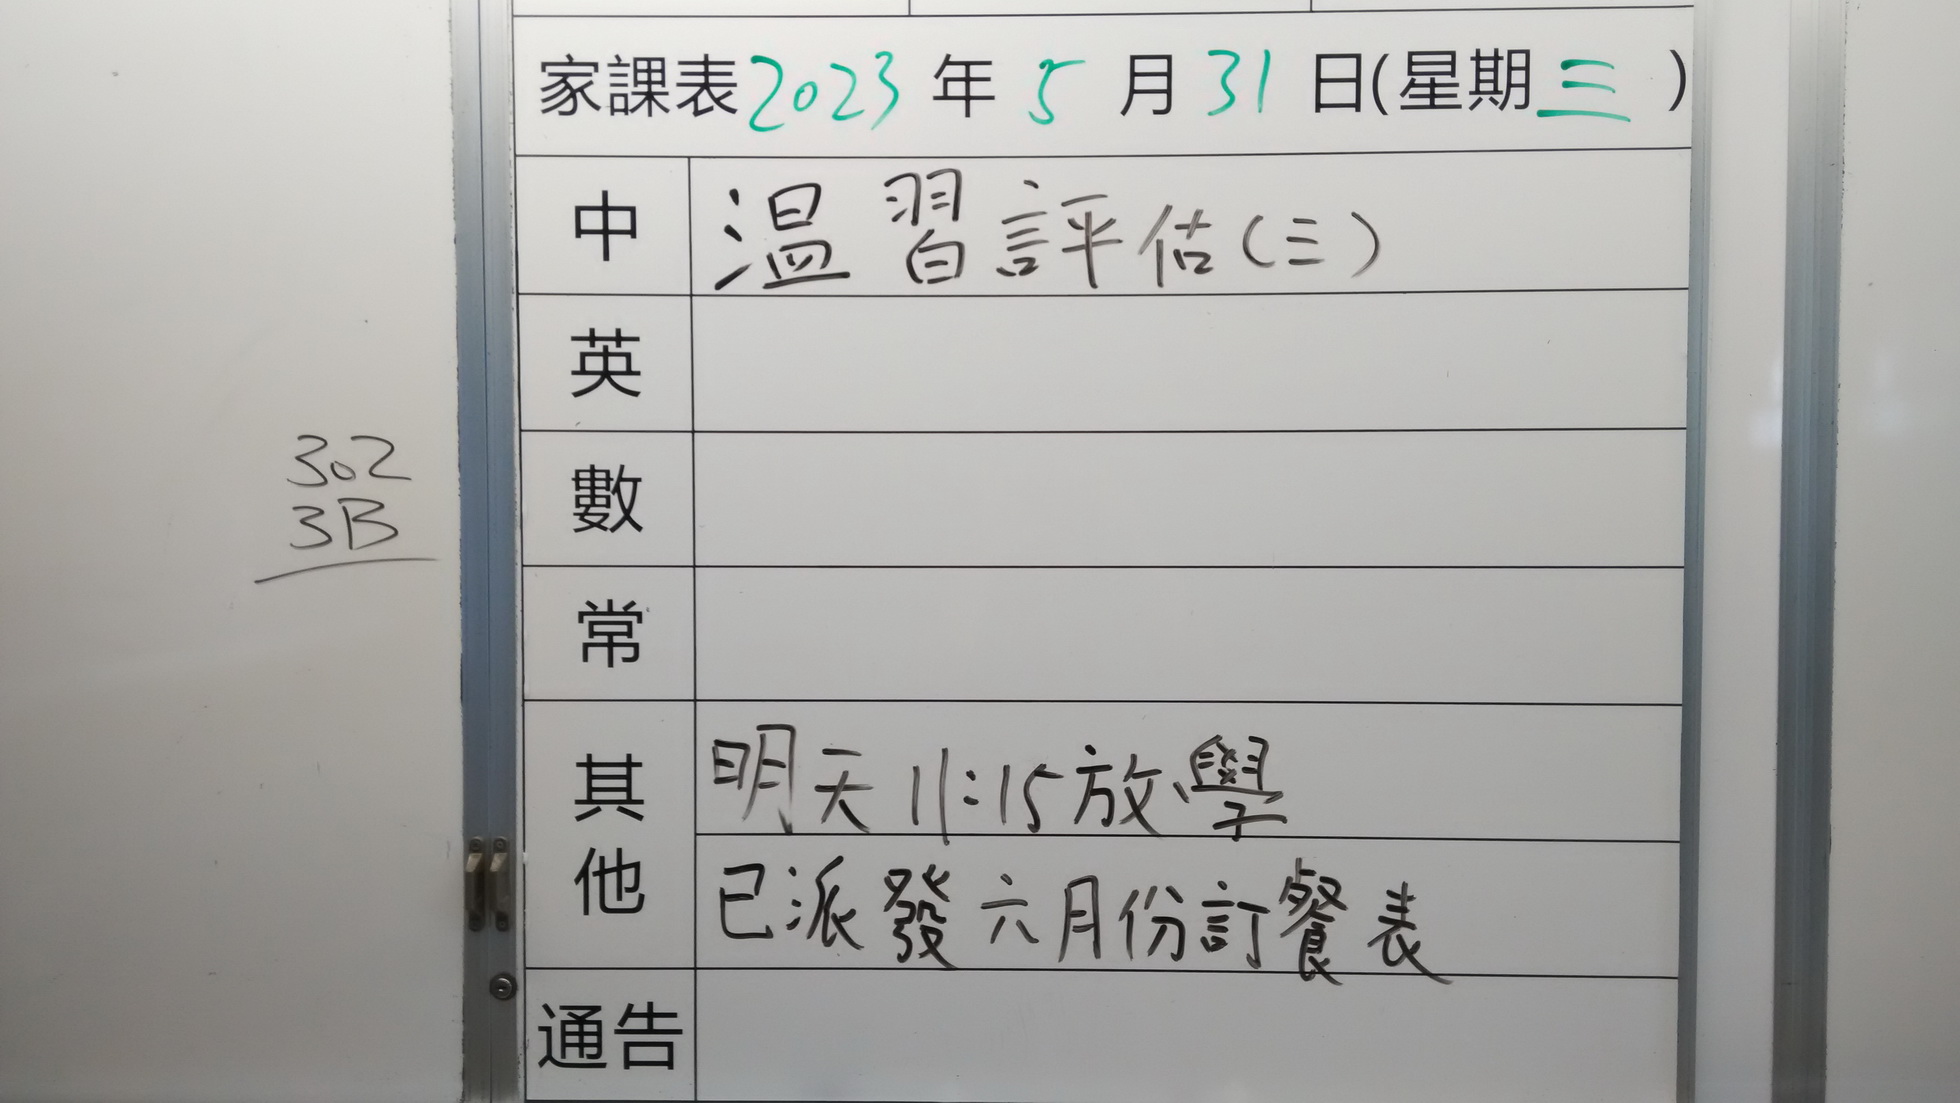 家課表2023年5月31日(星期三)
中 温習評估(三)
英
數
常
其他 明天11:15放學
已派發六月份訂餐表
通告
302
3B